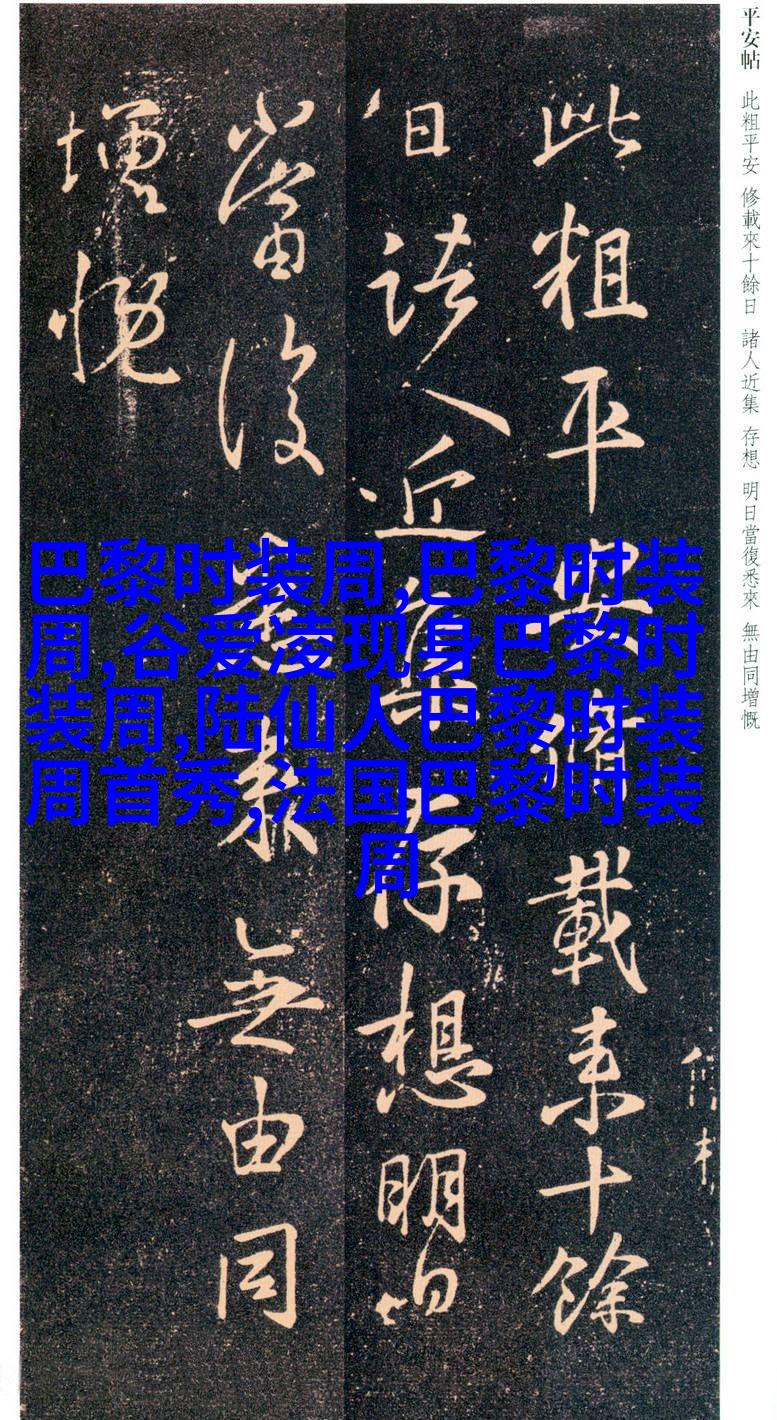 平安帖 此粗平安 修載來十餘日 諸人近集 存想 明日當復悉來 無由同增慨
此粗平安脩載来十餘
日諸人近集存想明日
當復悉来無由同
增慨
巴黎时装周,巴黎时装
周,谷爱凌现身巴黎时
装周,陆仙人巴黎时装
周首秀,法国巴黎时装
周